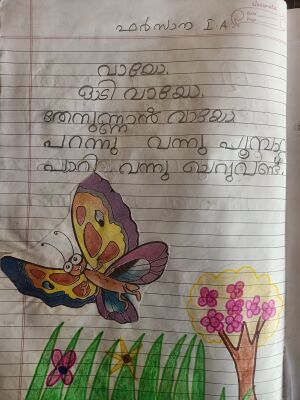 ഫർസാന I.A
വായോ.
ഓടി വായോ.
തേനുണ്ണാൻ വായോ
പറന്നു വന്നു പൂമ്പാറ്റ
പാറി വന്നു ചെറുവണ്ട്.